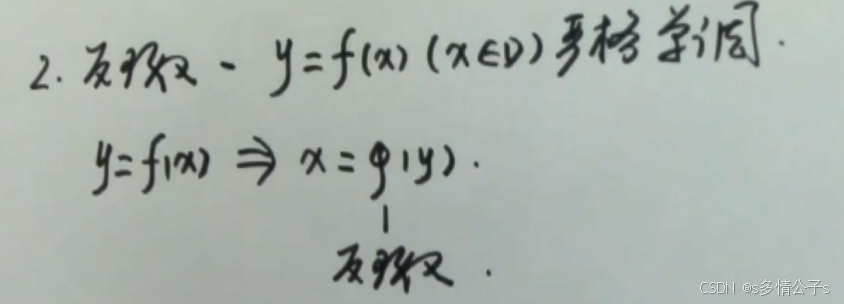 2. 反函数 - y=f(x) (x∈D) 严格单调.
y=f(x) ⇒ x=φ(y).
反函数.
CSDN @s多情公子s